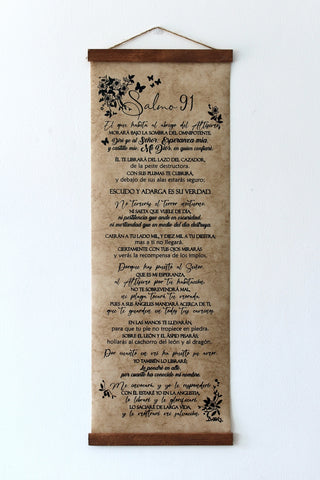 Salmo 91
El que habita al abrigo del Altísimo
MORARÁ BAJO LA SOMBRA DEL OMNIPOTENTE.
Diré yo al Señor: Esperanza mía,
y castillo mío; Mi Dios, en quien confiaré.
ÉL TE LIBRARÁ DEL LAZO DEL CAZADOR,
de la peste destructora.
CON SUS PLUMAS TE CUBRIRÁ,
y debajo de sus alas estarás seguro;
ESCUDO Y ADARGA ES SU VERDAD.
No temerás el terror nocturno,
NI SAETA QUE VUELE DE DÍA,
ni pestilencia que ande en oscuridad,
ni mortandad que en medio del día destruya.
CAERÁN A TU LADO MIL, Y DIEZ MIL A TU DIESTRA;
mas a ti no llegará.
CIERTAMENTE CON TUS OJOS MIRARÁS
y verás la recompensa de los impíos.
Porque has puesto al Señor,
QUE ES MI ESPERANZA,
al Altísimo por tu habitación,
NO TE SOBREVENDRÁ MAL,
ni plaga tocará tu morada.
PUES A SUS ÁNGELES MANDARÁ ACERCA DE TI,
que te guarden en todos tus caminos.
EN LAS MANOS TE LLEVARÁN,
para que tu pie no tropiece en piedra.
SOBRE EL LEÓN Y EL ÁSPID PISARÁS;
hollarás al cachorro del león y al dragón.
Por cuanto en mí ha puesto su amor,
YO TAMBIÉN LO LIBRARÉ;
Le pondré en alto,
por cuanto ha conocido mi nombre.
Me invocará, y yo le responderé;
CON ÉL ESTARÉ YO EN LA ANGUSTIA;
lo libraré y le glorificaré.
LO SACIARÉ DE LARGA VIDA,
y le mostraré mi salvación.